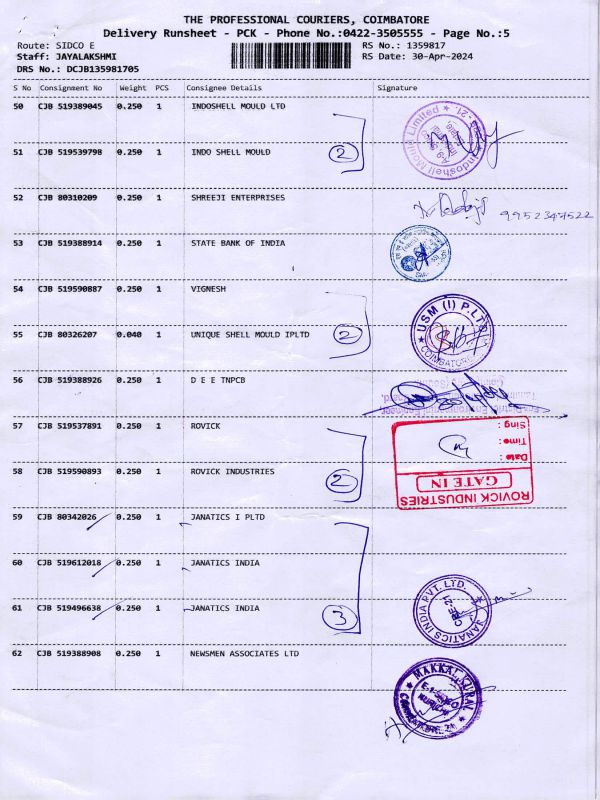 THE PROFESSIONAL COURIERS, COIMBATORE
Delivery Runsheet - PCK - Phone No.:0422-3505555 - Page No.:5
Route: SIDCO E RS No.: 1359817
Staff: JAYALAKSHMI RS Date: 30-Apr-2024
DRS No.: DCJB135981705
S No Consignment No Weight PCS Consignee Details Signature
50 CJB 519389045 0.250 1 INDOSHELL MOULD LTD
Indoshell Mould Limited
51 CJB 519539798 0.250 1 INDO SHELL MOULD 2
52 CJB 80310209 0.250 1 SHREEJI ENTERPRISES
53 CJB 519388914 0.250 1 STATE BANK OF INDIA
54 CJB 519590887 0.250 1 VIGNESH
USM (I) P.LTD
COIMBATORE
55 CJB 80326207 0.040 1 UNIQUE SHELL MOULD IPLTD 2
56 CJB 519388926 0.250 1 D E E TNPCB
57 CJB 519537891 0.250 1 ROVICK
Sing :
Time :
Date :
GATE IN
ROVICK INDUSTRIES
58 CJB 519590893 0.250 1 ROVICK INDUSTRIES 2
59 CJB 80342026 0.250 1 JANATICS I PLTD
60 CJB 519612018 0.250 1 JANATICS INDIA
61 CJB 519496638 0.250 1 JANATICS INDIA 3
JANATICS INDIA PVT. LTD.
CBE-21
62 CJB 519388908 0.250 1 NEWSMEN ASSOCIATES LTD
MAKKAL KURAL